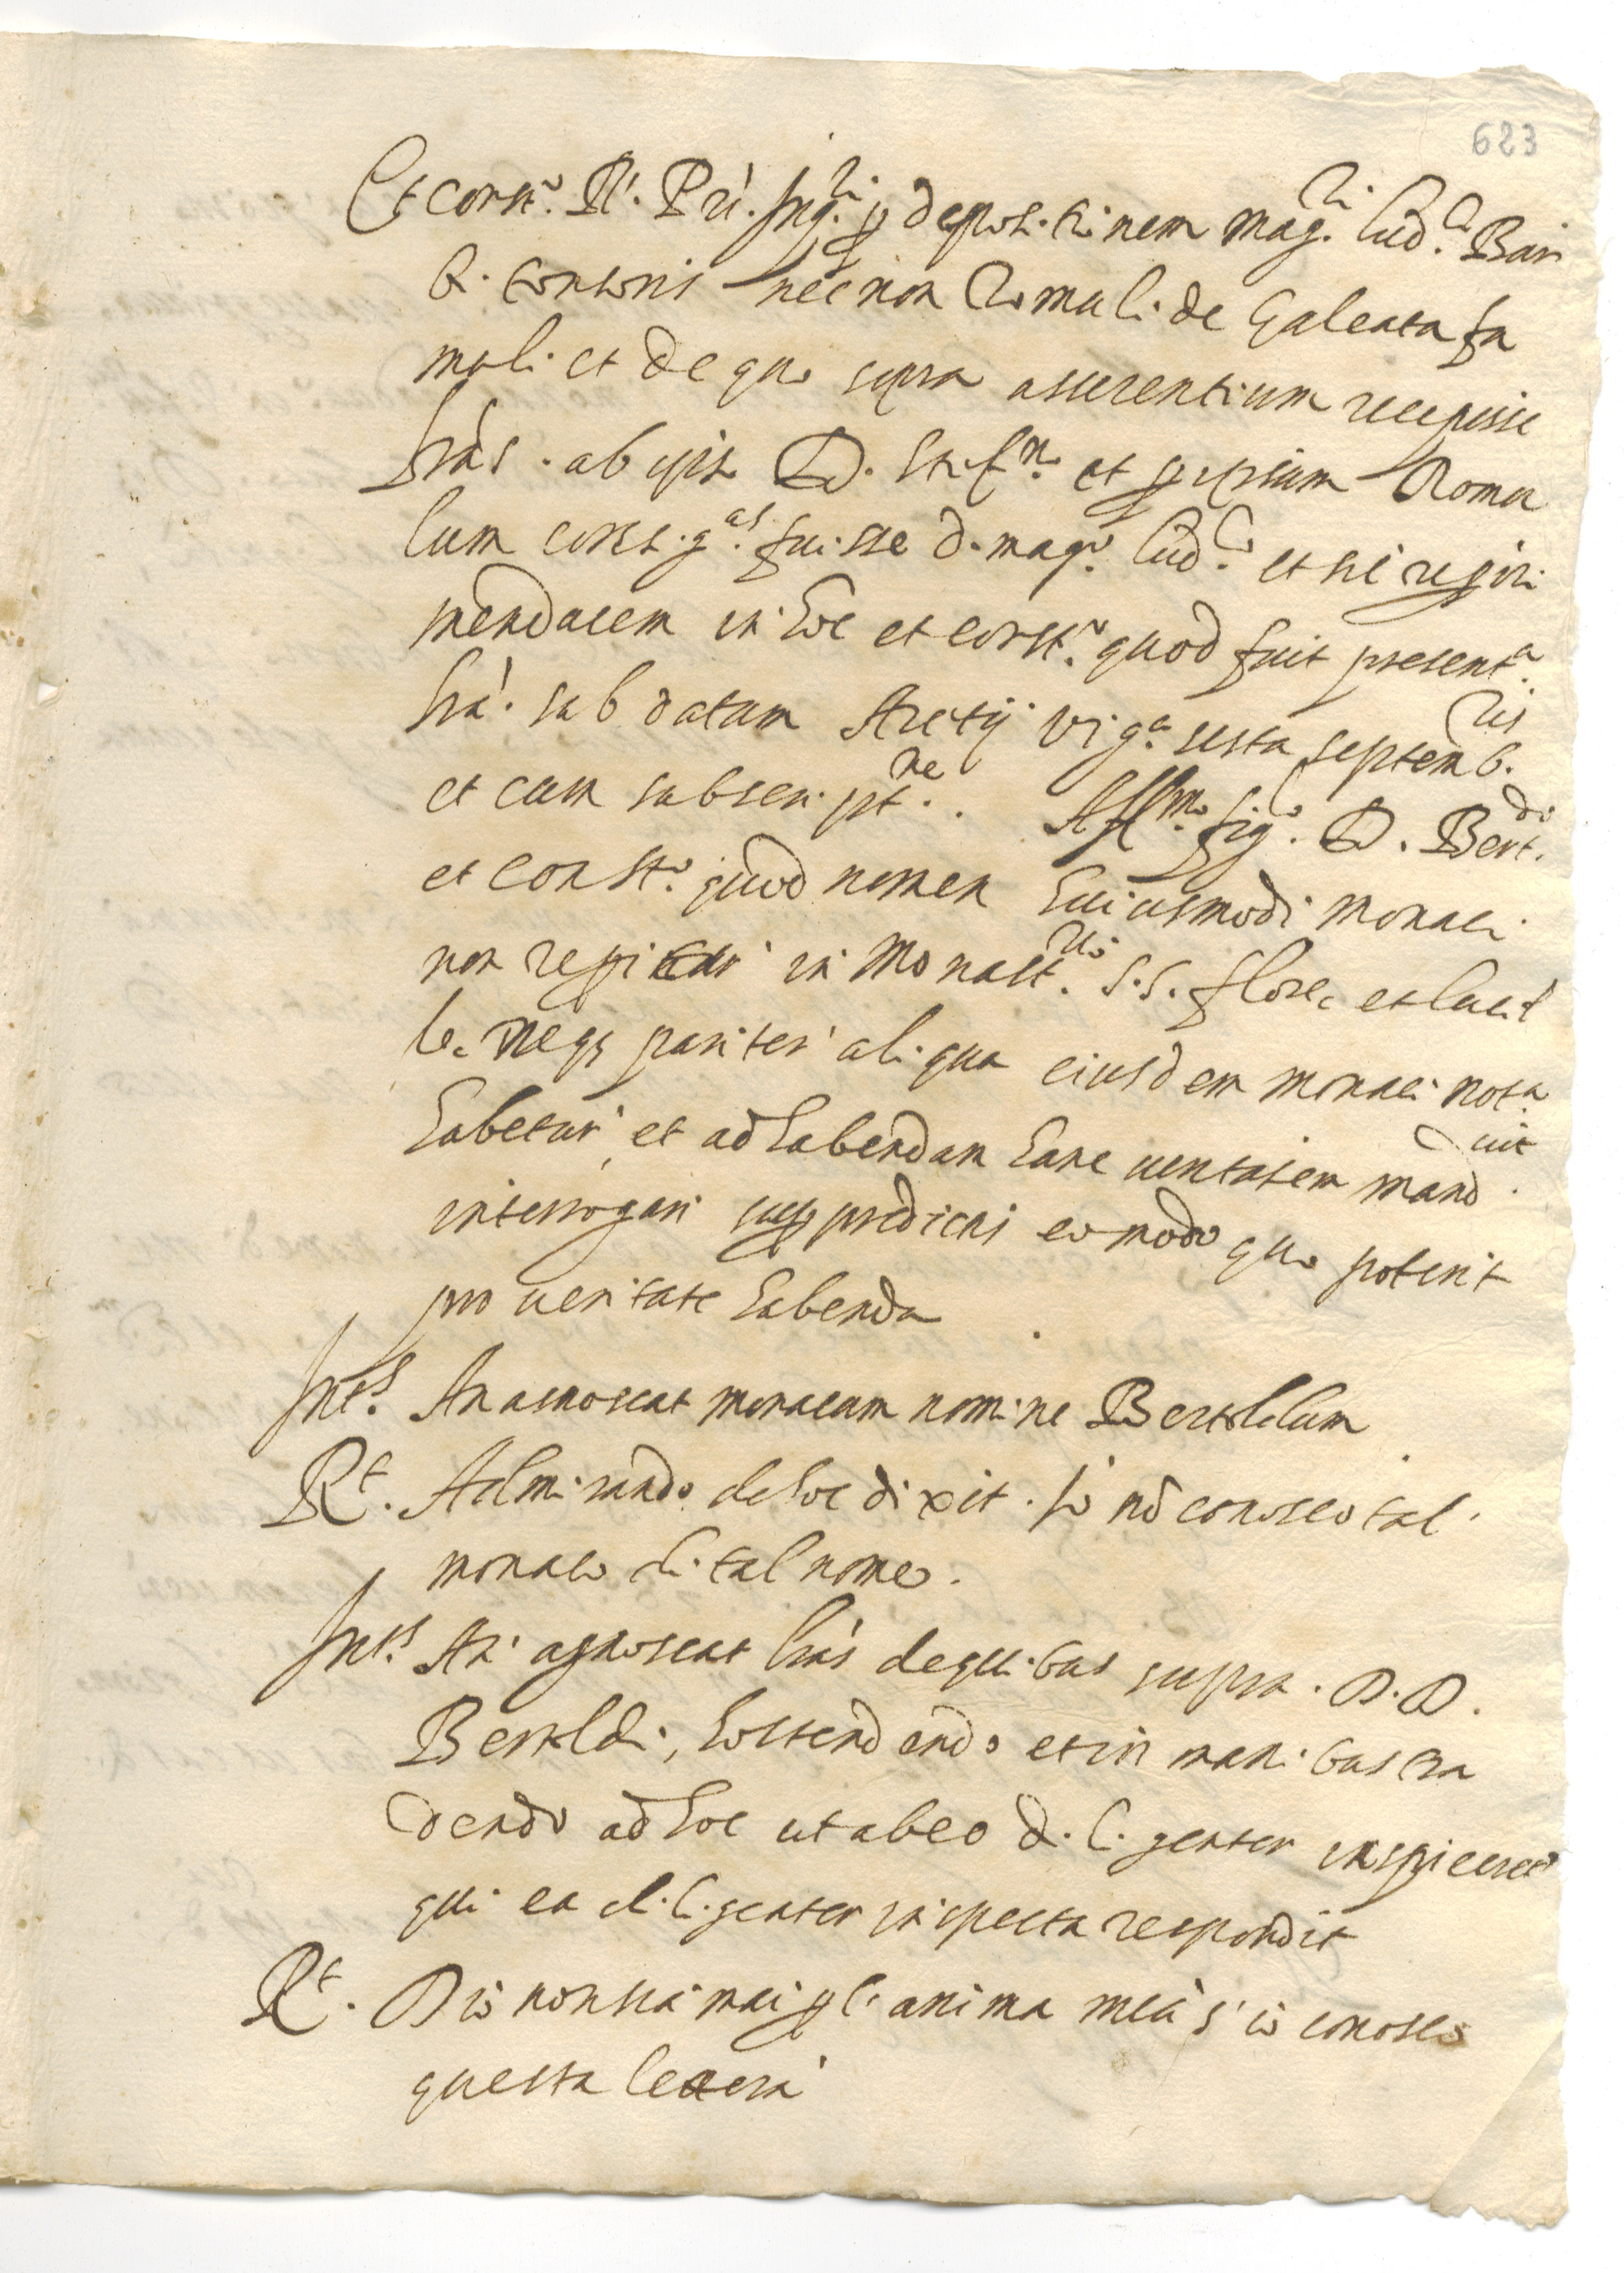 623
Et const.º R. Pri. Inq.ri p depositionem mag.ri Lud.ci Bari
b. tonsoris necnon Romuli de Galeata fa
muli et de quo supra asserentium recepisse
lràs. ab ipso D. Stef.no et per ipsum Romu
lum consig.as fuisse d. mag.ro Lud.co et sic reperiri
mendacem in hoc et const.º quod fuit present.a
lrà. sub datum Aretij vig.a sesta septemb.ris
et cum subscript.ne. Aff.mo fig.lo D. Bert.do
et const.º quod nomen huiusmodi monaci
non reperitur in Monast.rio S.S. Flore et Lucil
le neq3 pariter aliqua eiusdem monaci nota
habetur et ad habendam hanc veritatem mand.uit
interrogari sup predictis eo modo quo poterit
pro veritate habenda
Int.s An agnoscat monacum nomine Bertoldum
R.t Admirando de hoc dixit. Io nō conosco tal
monaco di tal nome.
Int.s An agnoscat lràs de quibus supra. D. D.
Bertoldi, hostendendo et in manibus tra
dendo ad hoc ut ab eo diligenter inspiceret
qui ea diligenter inspecta respondit
R.t Dio non sia mai p l'anima mia s'io conosco
questa lettera